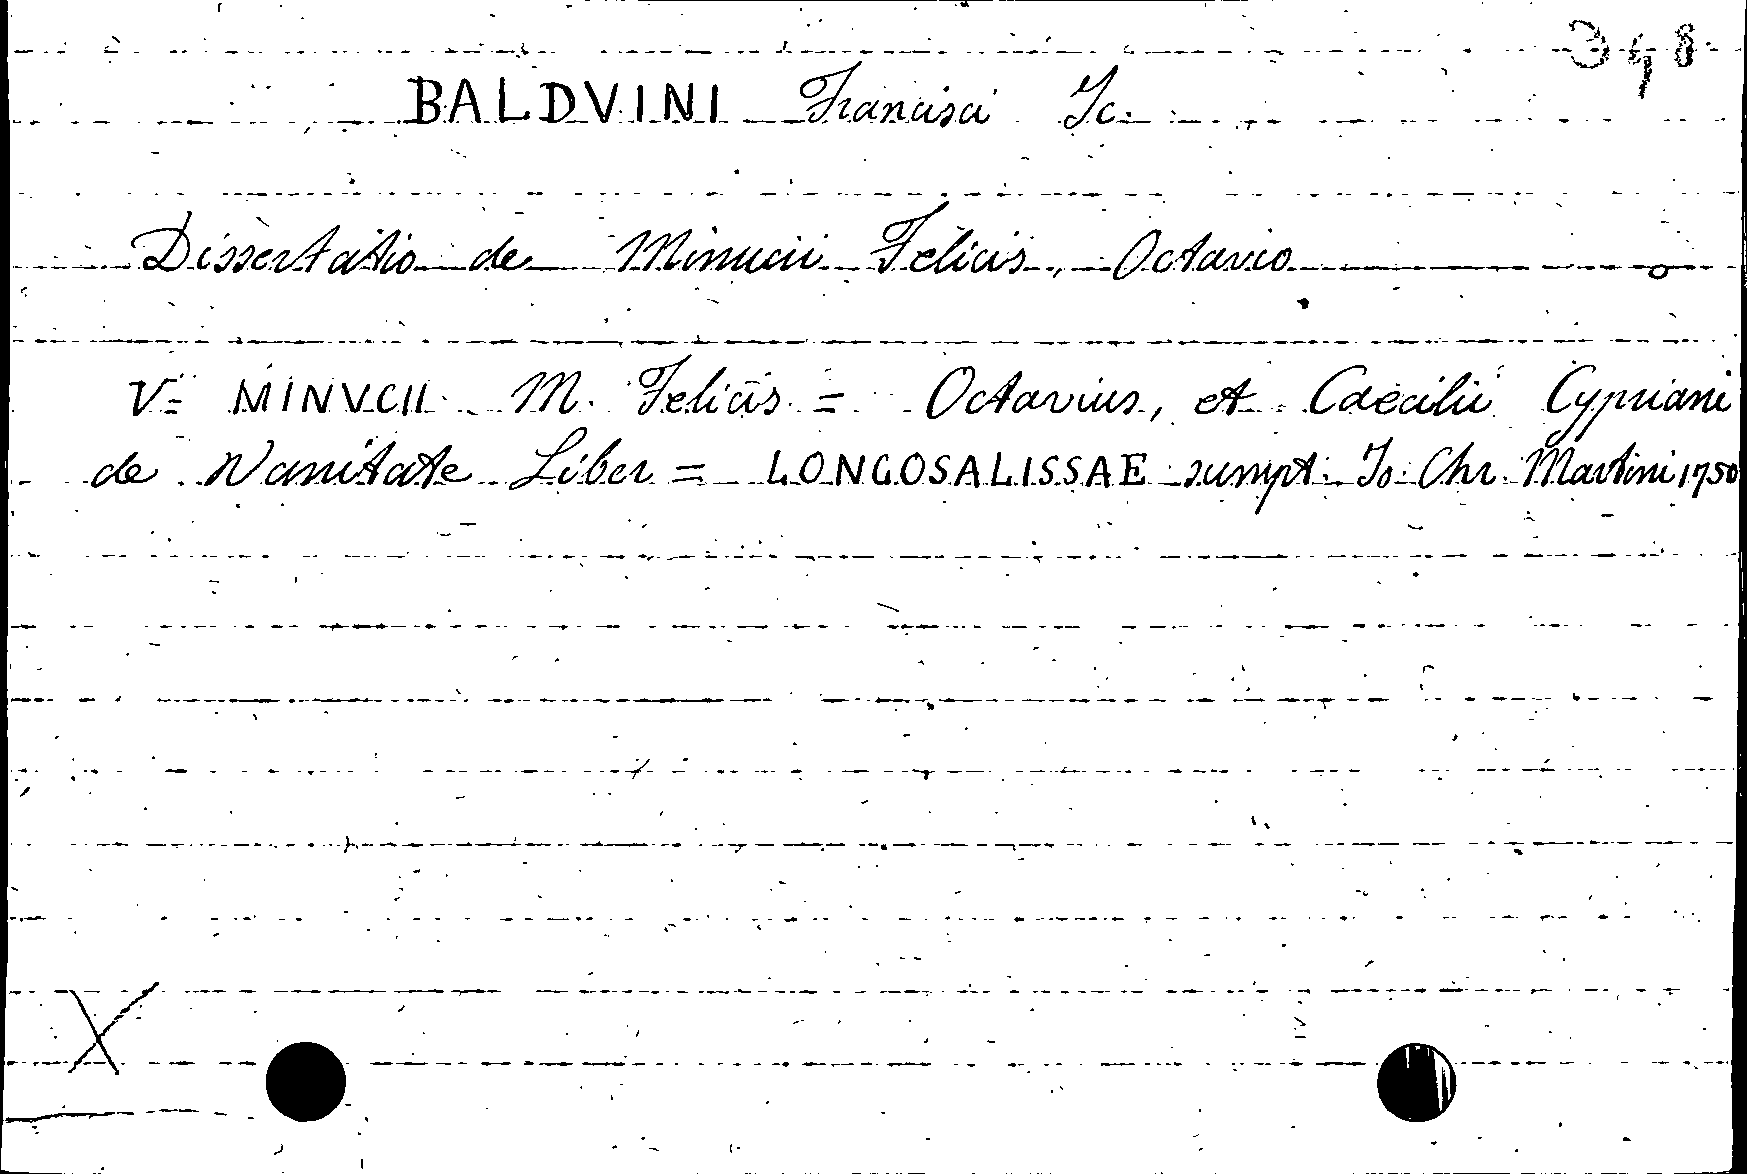 348
BALDVINI Francisci Jc.
Dissertatio de Minucii Felicis, Octavio
V= MINVCII M. Felicis = Octavius, et Caecilii Cypriani
de Vanitate Liber = LONGOSALISSAE sumpt. Jo. Chr. Martini 1750
X